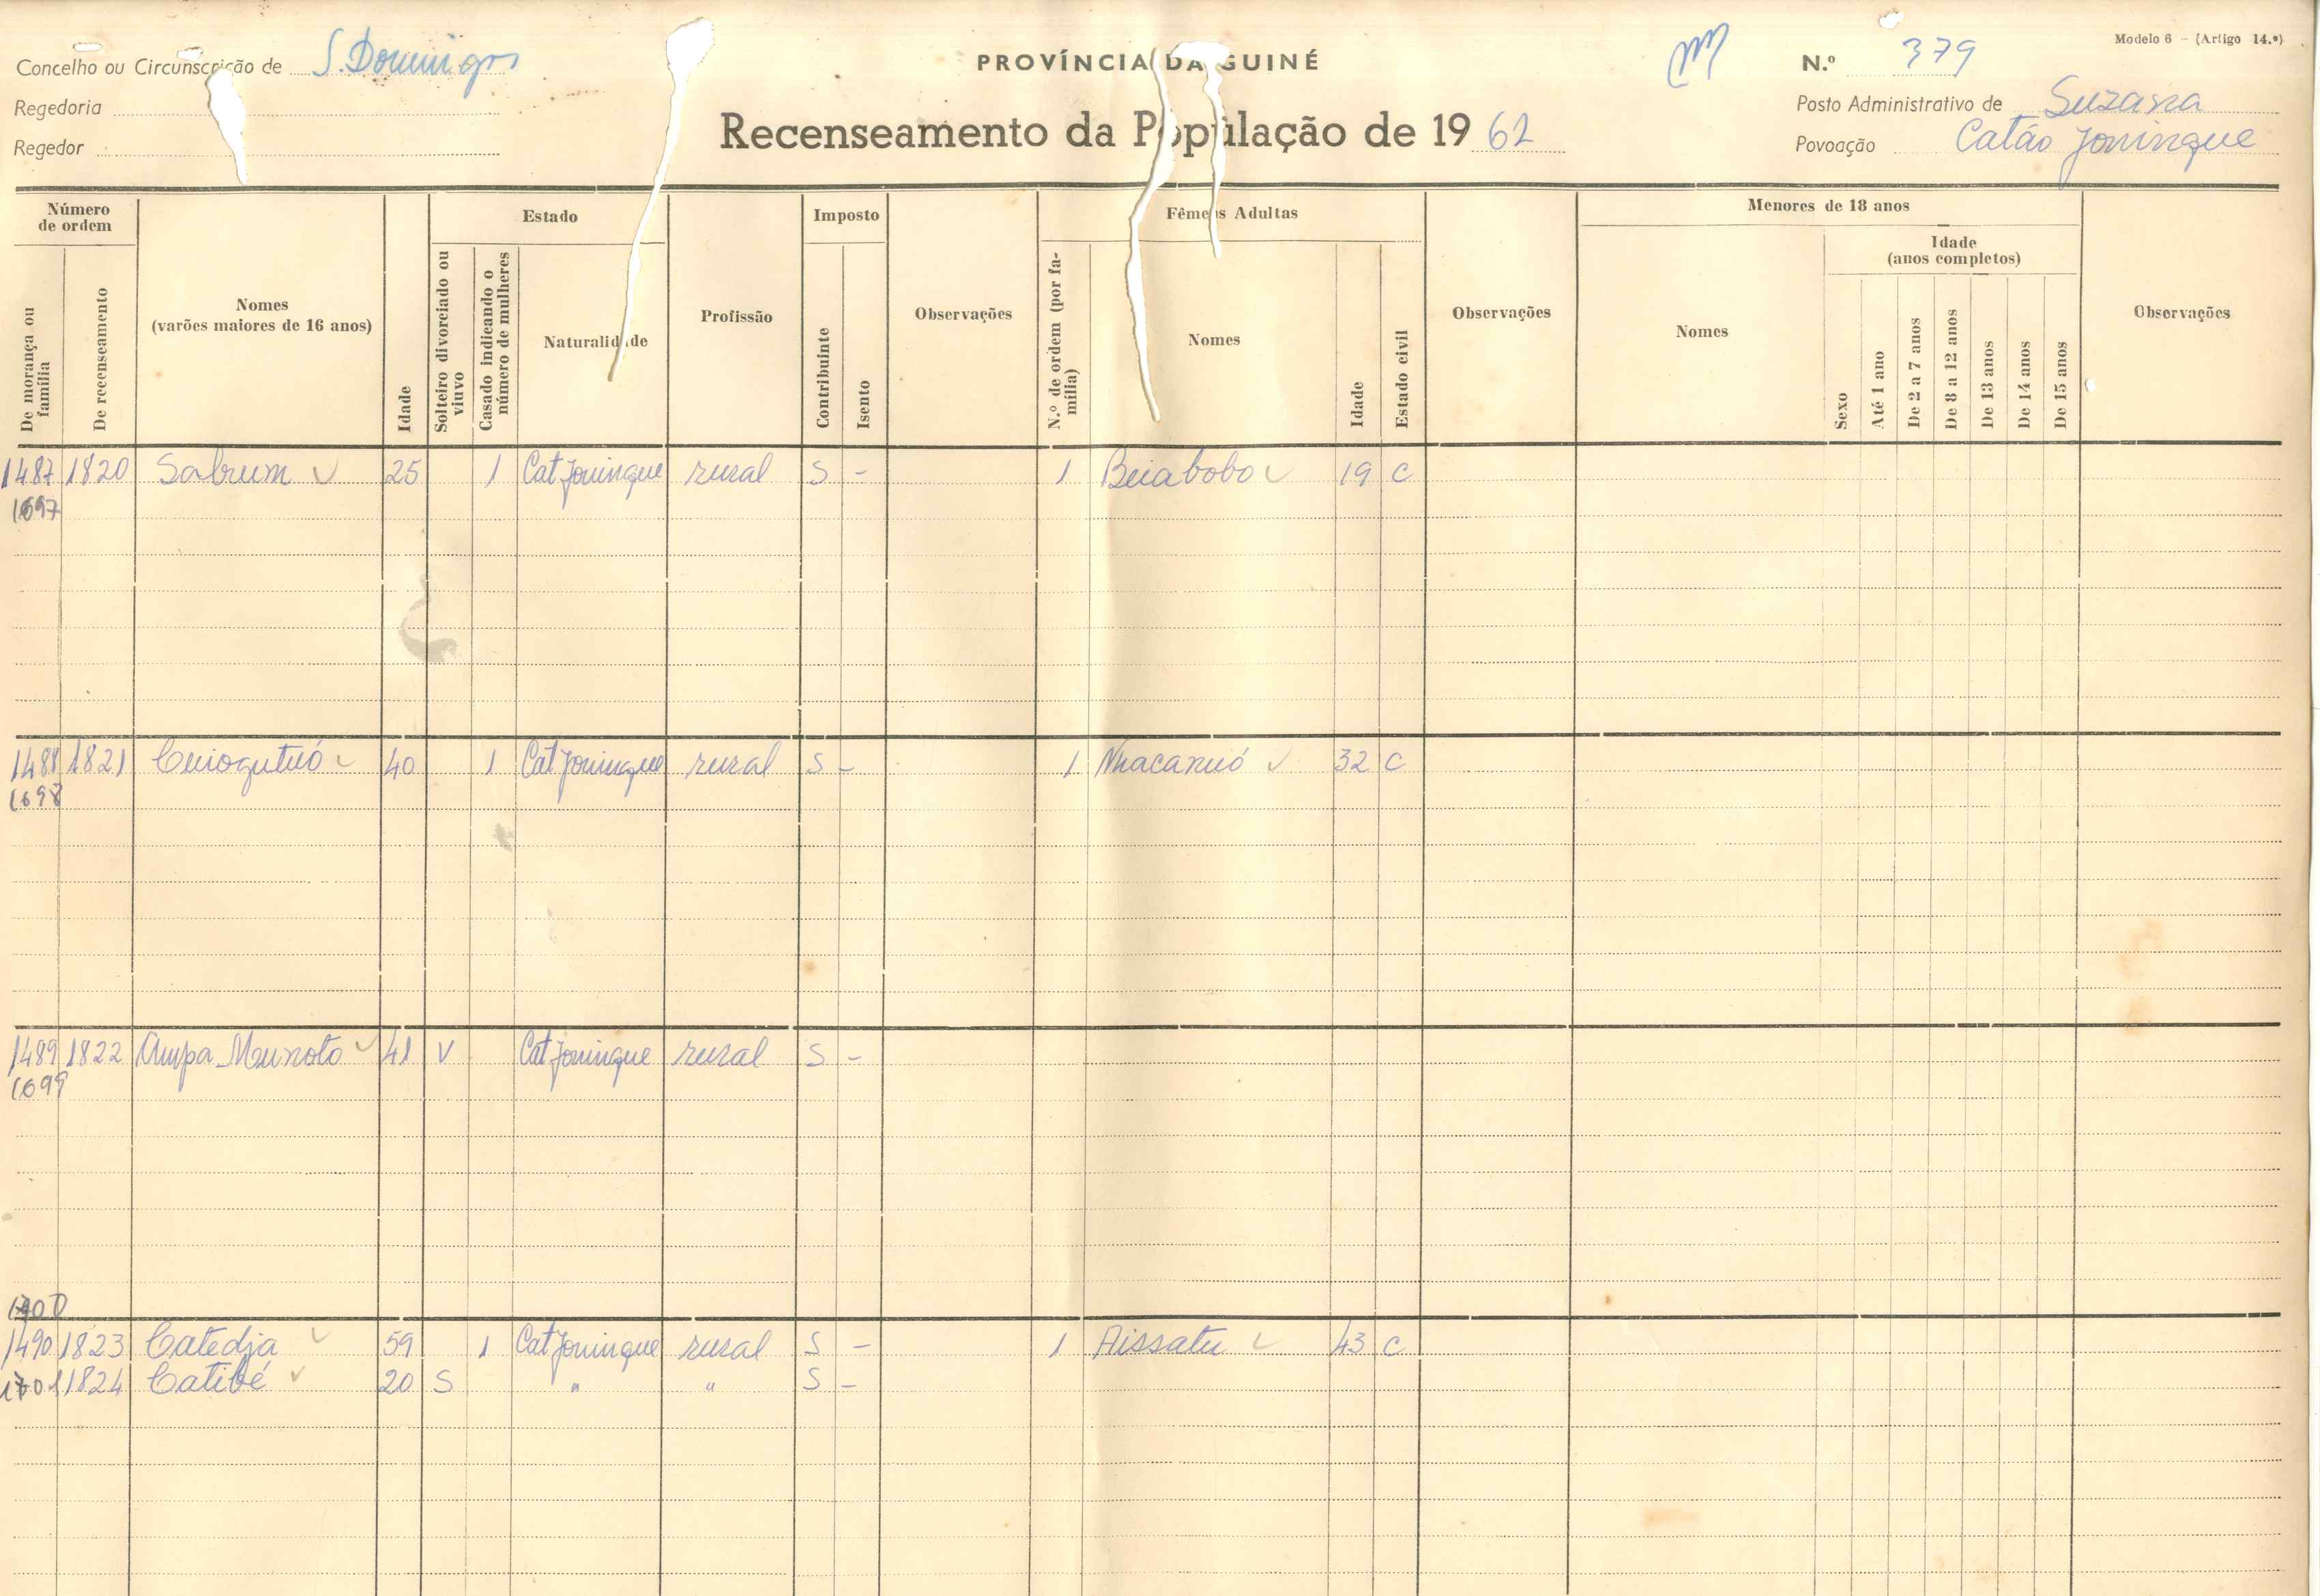 Modelo 6 - (Artigo 14.º)
Concelho ou Circunscrição de S. Domingos
PROVÍNCIA DA GUINÉ
N.º 379
Regedoria
Recenseamento da População de 1962
Posto Administrativo de Suzana
Regedor
Povoação Catão Joningue
Número de ordem
Estado
Imposto
Fêmeas Adultas
Menores de 18 anos
De morança ou família
De recenseamento
Nomes
(varões maiores de 16 anos)
Idade
Solteiro divorciado ou viuvo
Casado indicando o número de mulheres
Naturalidade
Profissão
Contribuinte
Isento
Observações
N.º de ordem (por família)
Nomes
Idade
Estado civil
Observações
Nomes
Sexo
Idade
(anos completos)
Até 1 ano
De 2 a 7 anos
De 8 a 12 anos
De 13 anos
De 14 anos
De 15 anos
Observações
1487 1820 Sabrum 25 1 Cat Joningue rural S - 1 Beiabobo 19 C
1697
1488 1821 40 1 Cat Joningue rural S - 1 32 C
1698
1489 1822 Ampa 41 V Cat Joningue rural S -
1699
1700
1490 1823 Catedja 59 1 Cat Joningue rural S - 1 Aissatu 43 C
1701 1824 Catibé 20 S " " S -